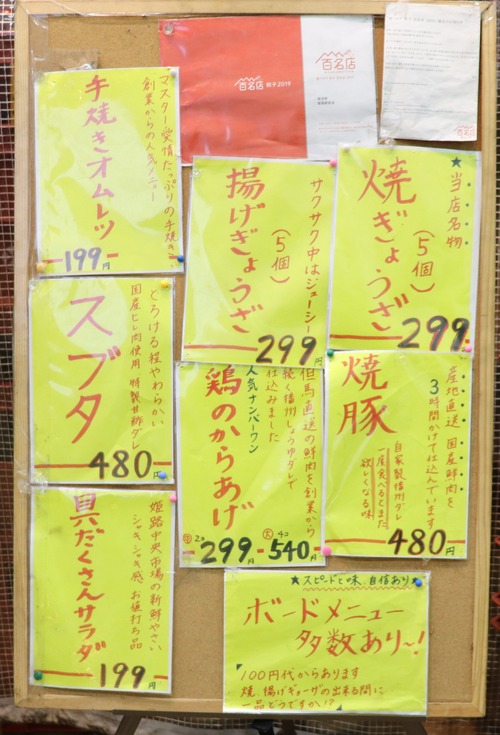 百名店 餃子2019
百名店
百名店
★当店名物
焼ぎょうざ
(5個)
299
サクサク中はジューシー
揚げぎょうざ
(5個)
299円
マスター愛情たっぷりの手焼き
創業からの人気メニュー
手焼きオムレツ
199円
産地直送 国産鮮肉を
3時間かけて仕込んでいます
焼豚
自家製播州ダレ
一度食べるとまた
欲しくなる味
480円
但馬直送の鮮肉を創業から
続く播州しょうゆダレで
仕込みました
人気ナンバーワン
鶏のからあげ
2コ
299
大 4コ
540円
とろける程やわらかい
国産ヒレ肉使用 特製甘酢ダレ
スブタ
480円
姫路中央市場の新鮮やさい
シャキシャキ感 お値打ち品
具だくさんサラダ
199円
★スピードと味、自信あり★
ボードメニュー
多数あり~!
100円代からあります
焼、揚げギョーザの出来る間に
一品どうですか!?